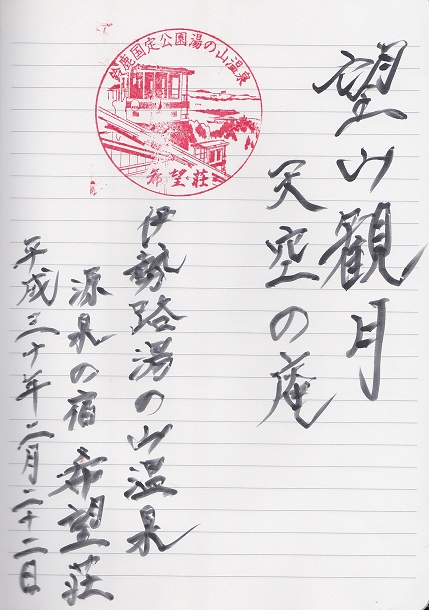 望山観月
天空の庵
鈴鹿国定公園湯の山温泉
希望荘
伊勢路湯の山温泉
源泉の宿 希望荘
平成三十年二月二十二日